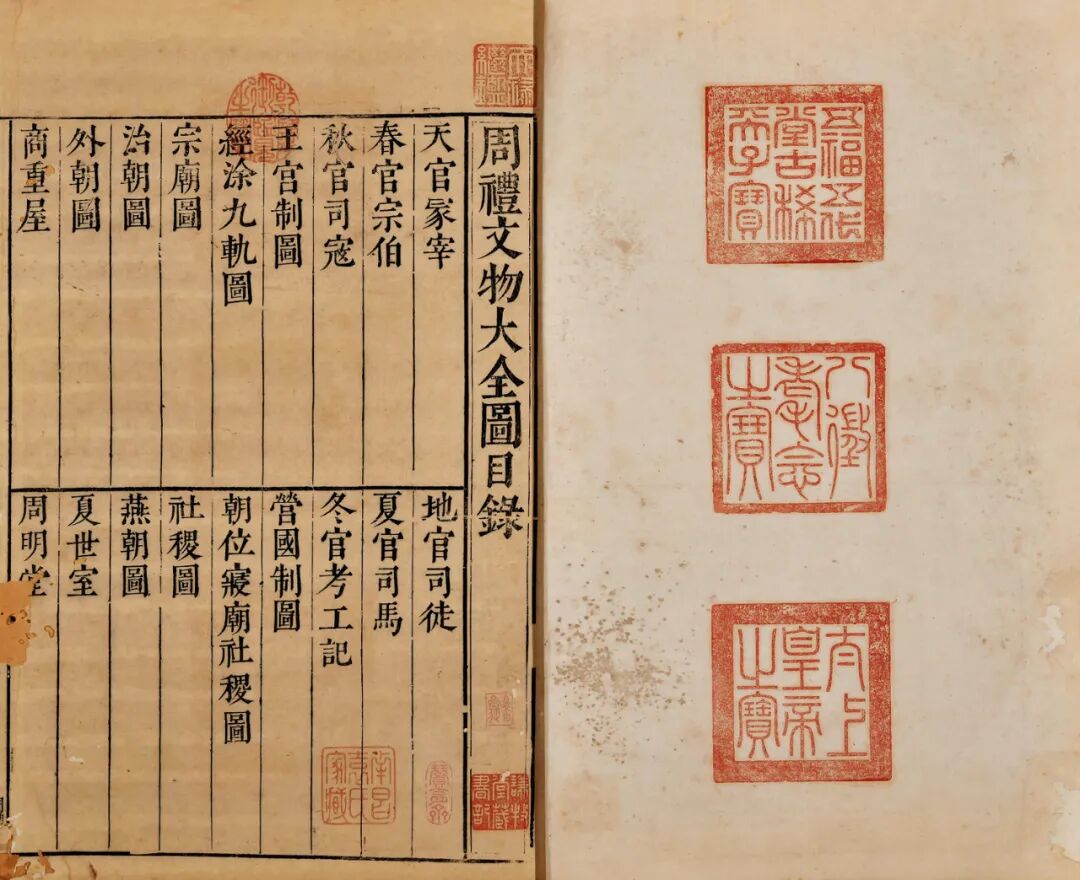 五福五代堂古稀天子寶
八徵耄念之寶
太上皇帝之寶
天祿繼鑑
周禮文物大全圖目錄
謙牧堂藏書記
天官冢宰
地官司徒
春官宗伯
夏官司馬
秋官司寇
冬官考工記
王宮制圖
營國制圖
經涂九軌圖
朝位寢廟社稷圖
宗廟圖
社稷圖
治朝圖
燕朝圖
外朝圖
夏世室
商重屋
周明堂
乾隆御覽之寶
南昌袁氏家藏